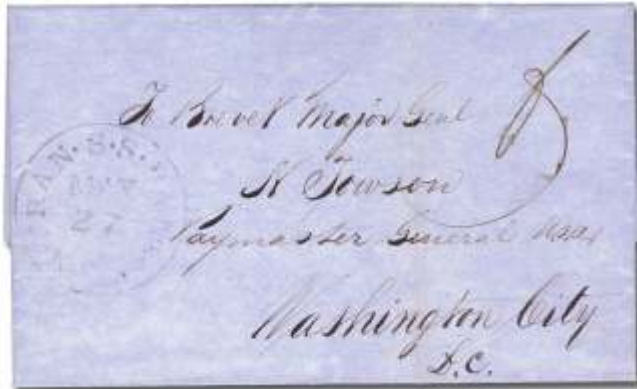 To Brevet Major Genl
N Towson
Paymaster General USA
Washington City
D.C.
RAN. S. S.
27